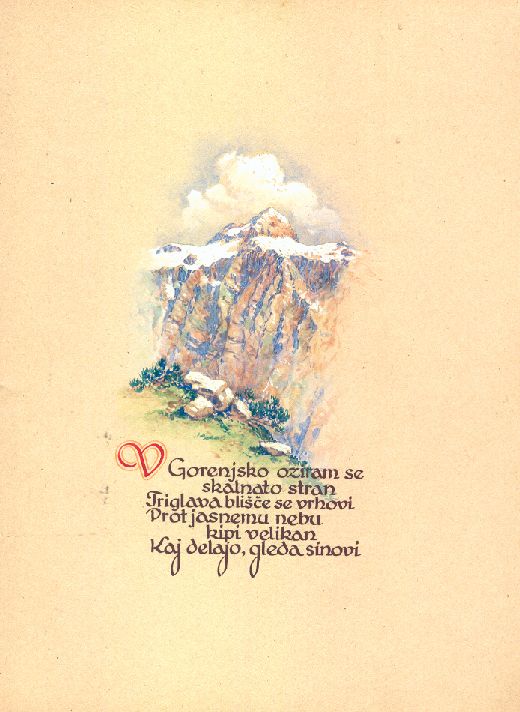 V Gorenjsko oziram se
skalnato stran
Triglava blišče se vrhovi
Prot jasnemu nebu
kipi velikan
Kaj delajo, gleda sinovi